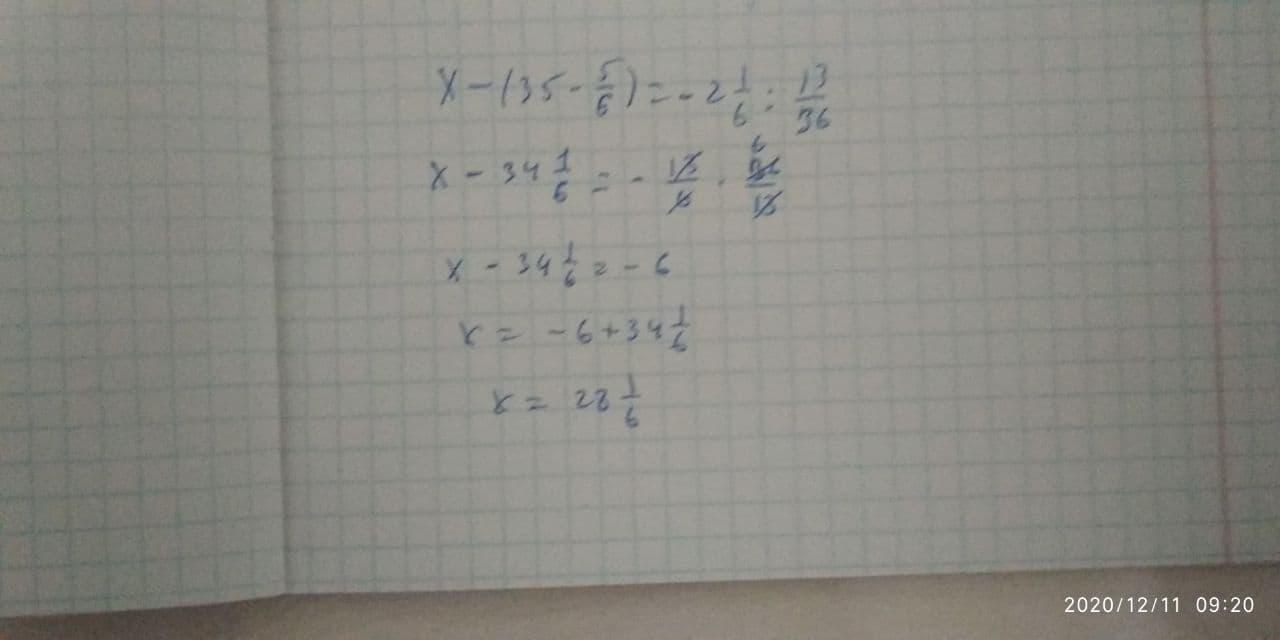 x - (35 - 5/6) = - 2 1/6 : 13/36
x - 34 1/6 = - 13/6 · 36/13 6
x - 34 1/6 = - 6
x = - 6 + 34 1/6
x = 28 1/6
2020/12/11 09:20